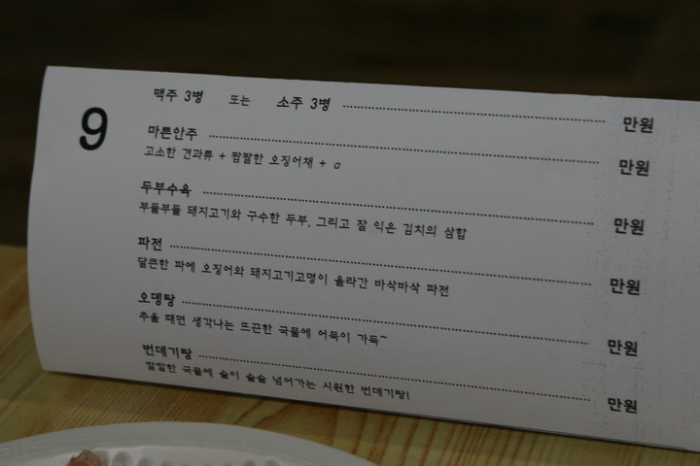 9
맥주 3병 또는 소주 3병 만원
마른안주 만원
고소한 견과류 + 짭짤한 오징어채 + α
두부수육 만원
부들부들 돼지고기와 구수한 두부, 그리고 잘 익은 김치의 삼합
파전 만원
달큰한 파에 오징어와 돼지고기고명이 올라간 바삭바삭 파전
오뎅탕 만원
추울 때면 생각나는 뜨끈한 국물에 어묵이 가득~
번데기탕 만원
짭짤한 국물에 술이 술술 넘어가는 시원한 번데기탕!